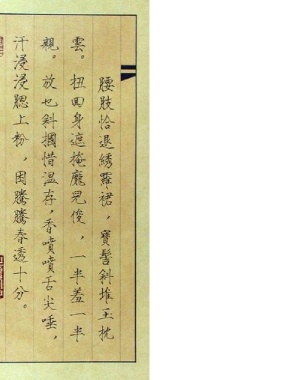 腰肢恰退綉羅裙，寶髻斜堆玉枕
雲。扭回身遮掩龐兒俊，一半羞一半
親。放也斜擱惜溫存，香噴噴舌尖唾，
汗浸浸腮上粉，困騰騰春透十分。